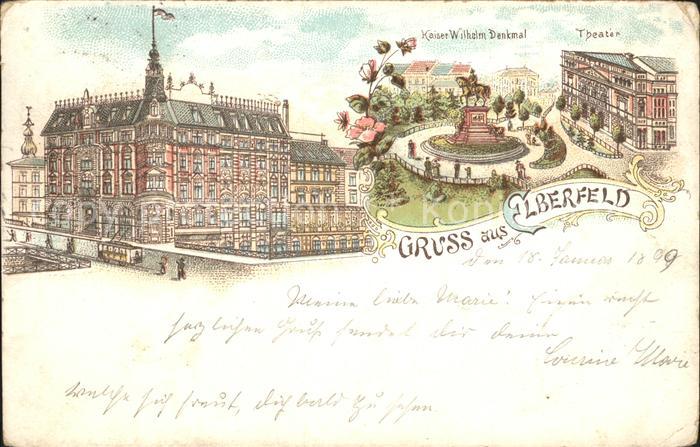 Kaiser Wilhelm Denkmal
Theater
GRUSS aus ELBERFELD
den 18. Januar 1899
Meine liebe Marie! Einen recht
herzlichen Gruß sendet dir deine
Cousine Marie
welche sich freut, dich bald zu sehen.